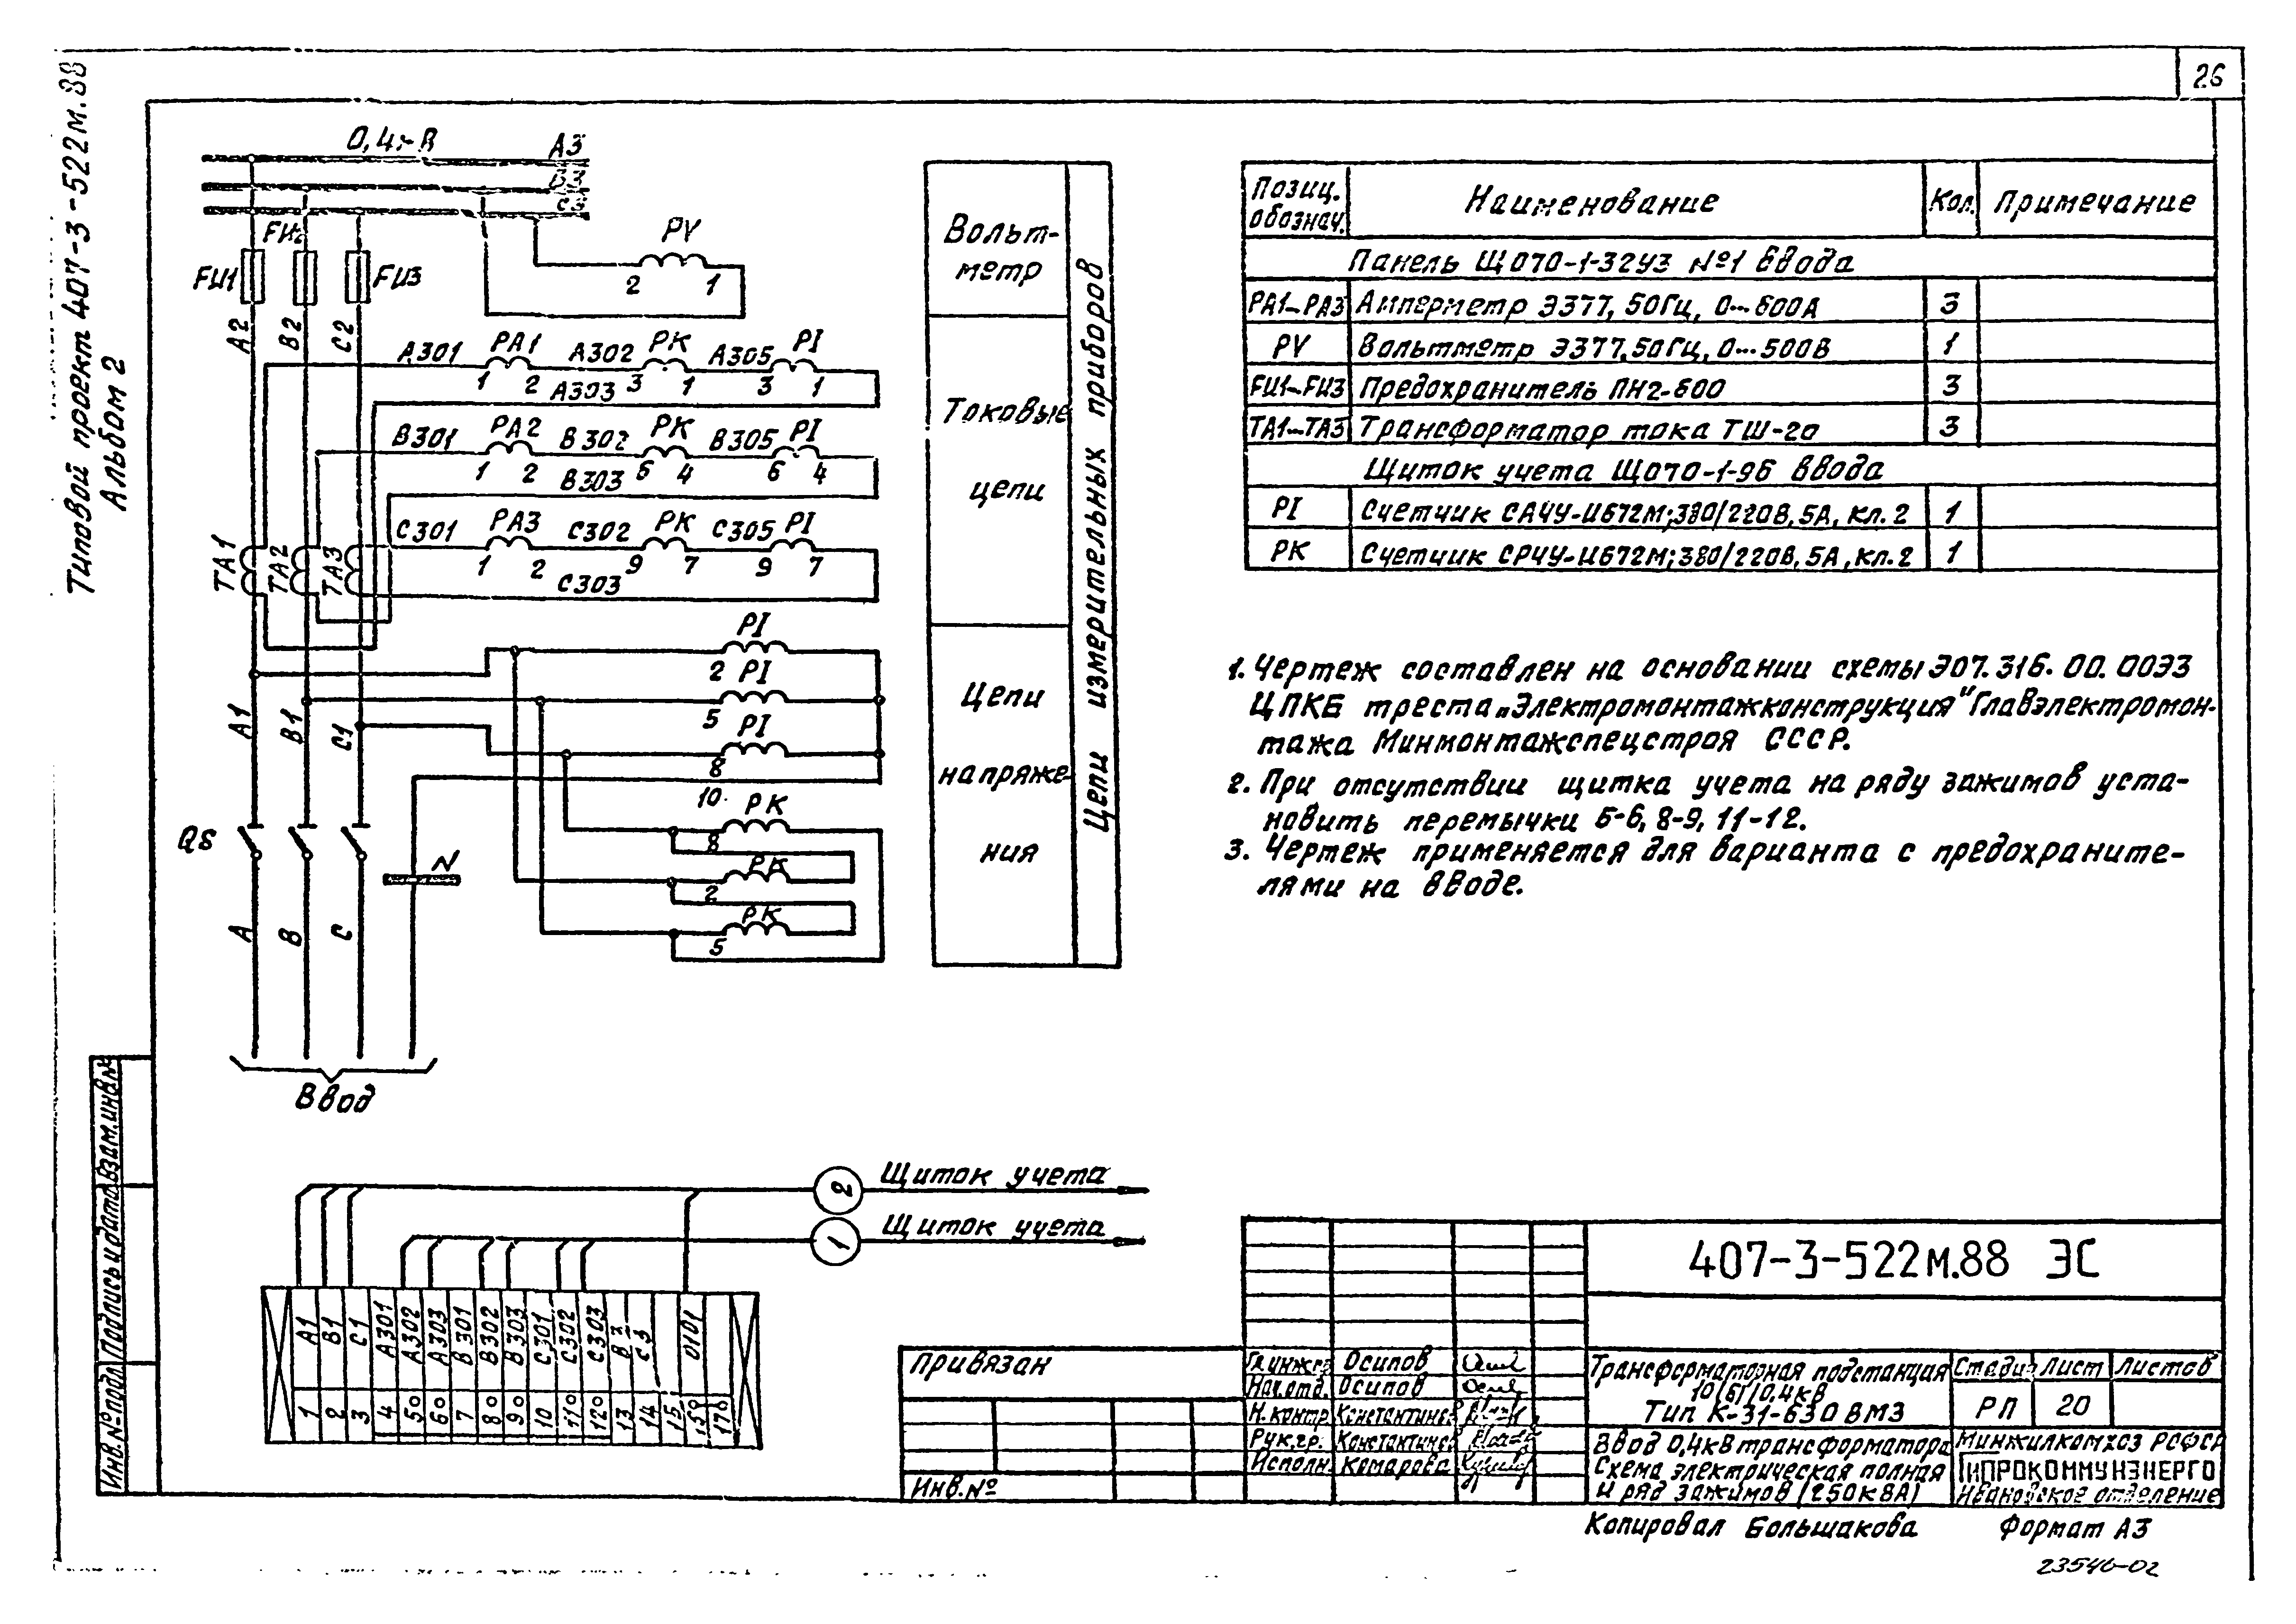 26
Типовой проект 407-3-522м.88
Альбом 2
0,4кВ
А3
В3
С3
FU2
FU1
FU3
А2
В2
С2
PV
2 1
А301 PA1 А302 PK А305 PI
1 2 3 1 3 1
А303
В301 PA2 В302 PK В305 PI
1 2 6 4 6 4
В303
С301 PA3 С302 PK С305 PI
1 2 9 7 9 7
С303
TA1
TA2
TA3
PI
2 PI
5 PI
8
10
А1
В1
С1
PK
8
PK
2
PK
5
QS
N
А
В
С
Ввод
Вольт-
метр
Токовые
цепи
Цепи
напряже-
ния
Цепи измерительных приборов
Позиц. обознач.
Наименование
Кол.
Примечание
Панель ЩО70-1-32У3 №1 ввода
PA1-PA3 Амперметр Э377, 50Гц, 0...600А 3
PV Вольтметр Э377, 50Гц, 0...500В 1
FU1-FU3 Предохранитель ПН2-600 3
TA1-TA3 Трансформатор тока ТШ-20 3
Щиток учета ЩО70-1-96 ввода
PI Счетчик СА4У-И672М; 380/220В, 5А, кл. 2 1
PK Счетчик СР4У-И672М; 380/220В, 5А, кл. 2 1
1. Чертеж составлен на основании схемы Э07.316.00.00Э3
ЦПКБ треста „Электромонтажконструкция" Главэлектромон-
тажа Минмонтажспецстроя СССР.
2. При отсутствии щитка учета на ряду зажимов уста-
новить перемычки 5-6, 8-9, 11-12.
3. Чертеж применяется для варианта с предохраните-
лями на вводе.
2 Щиток учета
1 Щиток учета
А1 В1 С1 А301 А302 А303 В301 В302 В303 С301 С302 С303 В3 С3 0101
1 2 3 4 5 6 7 8 9 10 11 12 13 14 15 17
Взам.инв№
Подпись и дата
Инв.№ подл.
Привязан
Инв.№
Гл.инж. Осипов
Нач.отд. Осипов
Н.контр.
Рук.гр.
Исполн. Комарова
407-3-522м.88 ЭС
Трансформаторная подстанция
10(6)/0,4кВ
Тип К-31-630ВМЗ
Стадия Лист Листов
РП 20
Ввод 0,4кВ трансформатора
Схема электрическая полная
и ряд зажимов (250кВА)
Минжилкомхоз РСФСР
ГИПРОКОММУНЭНЕРГО
Ивановское отделение
Копировал Большакова
Формат А3
23546-02